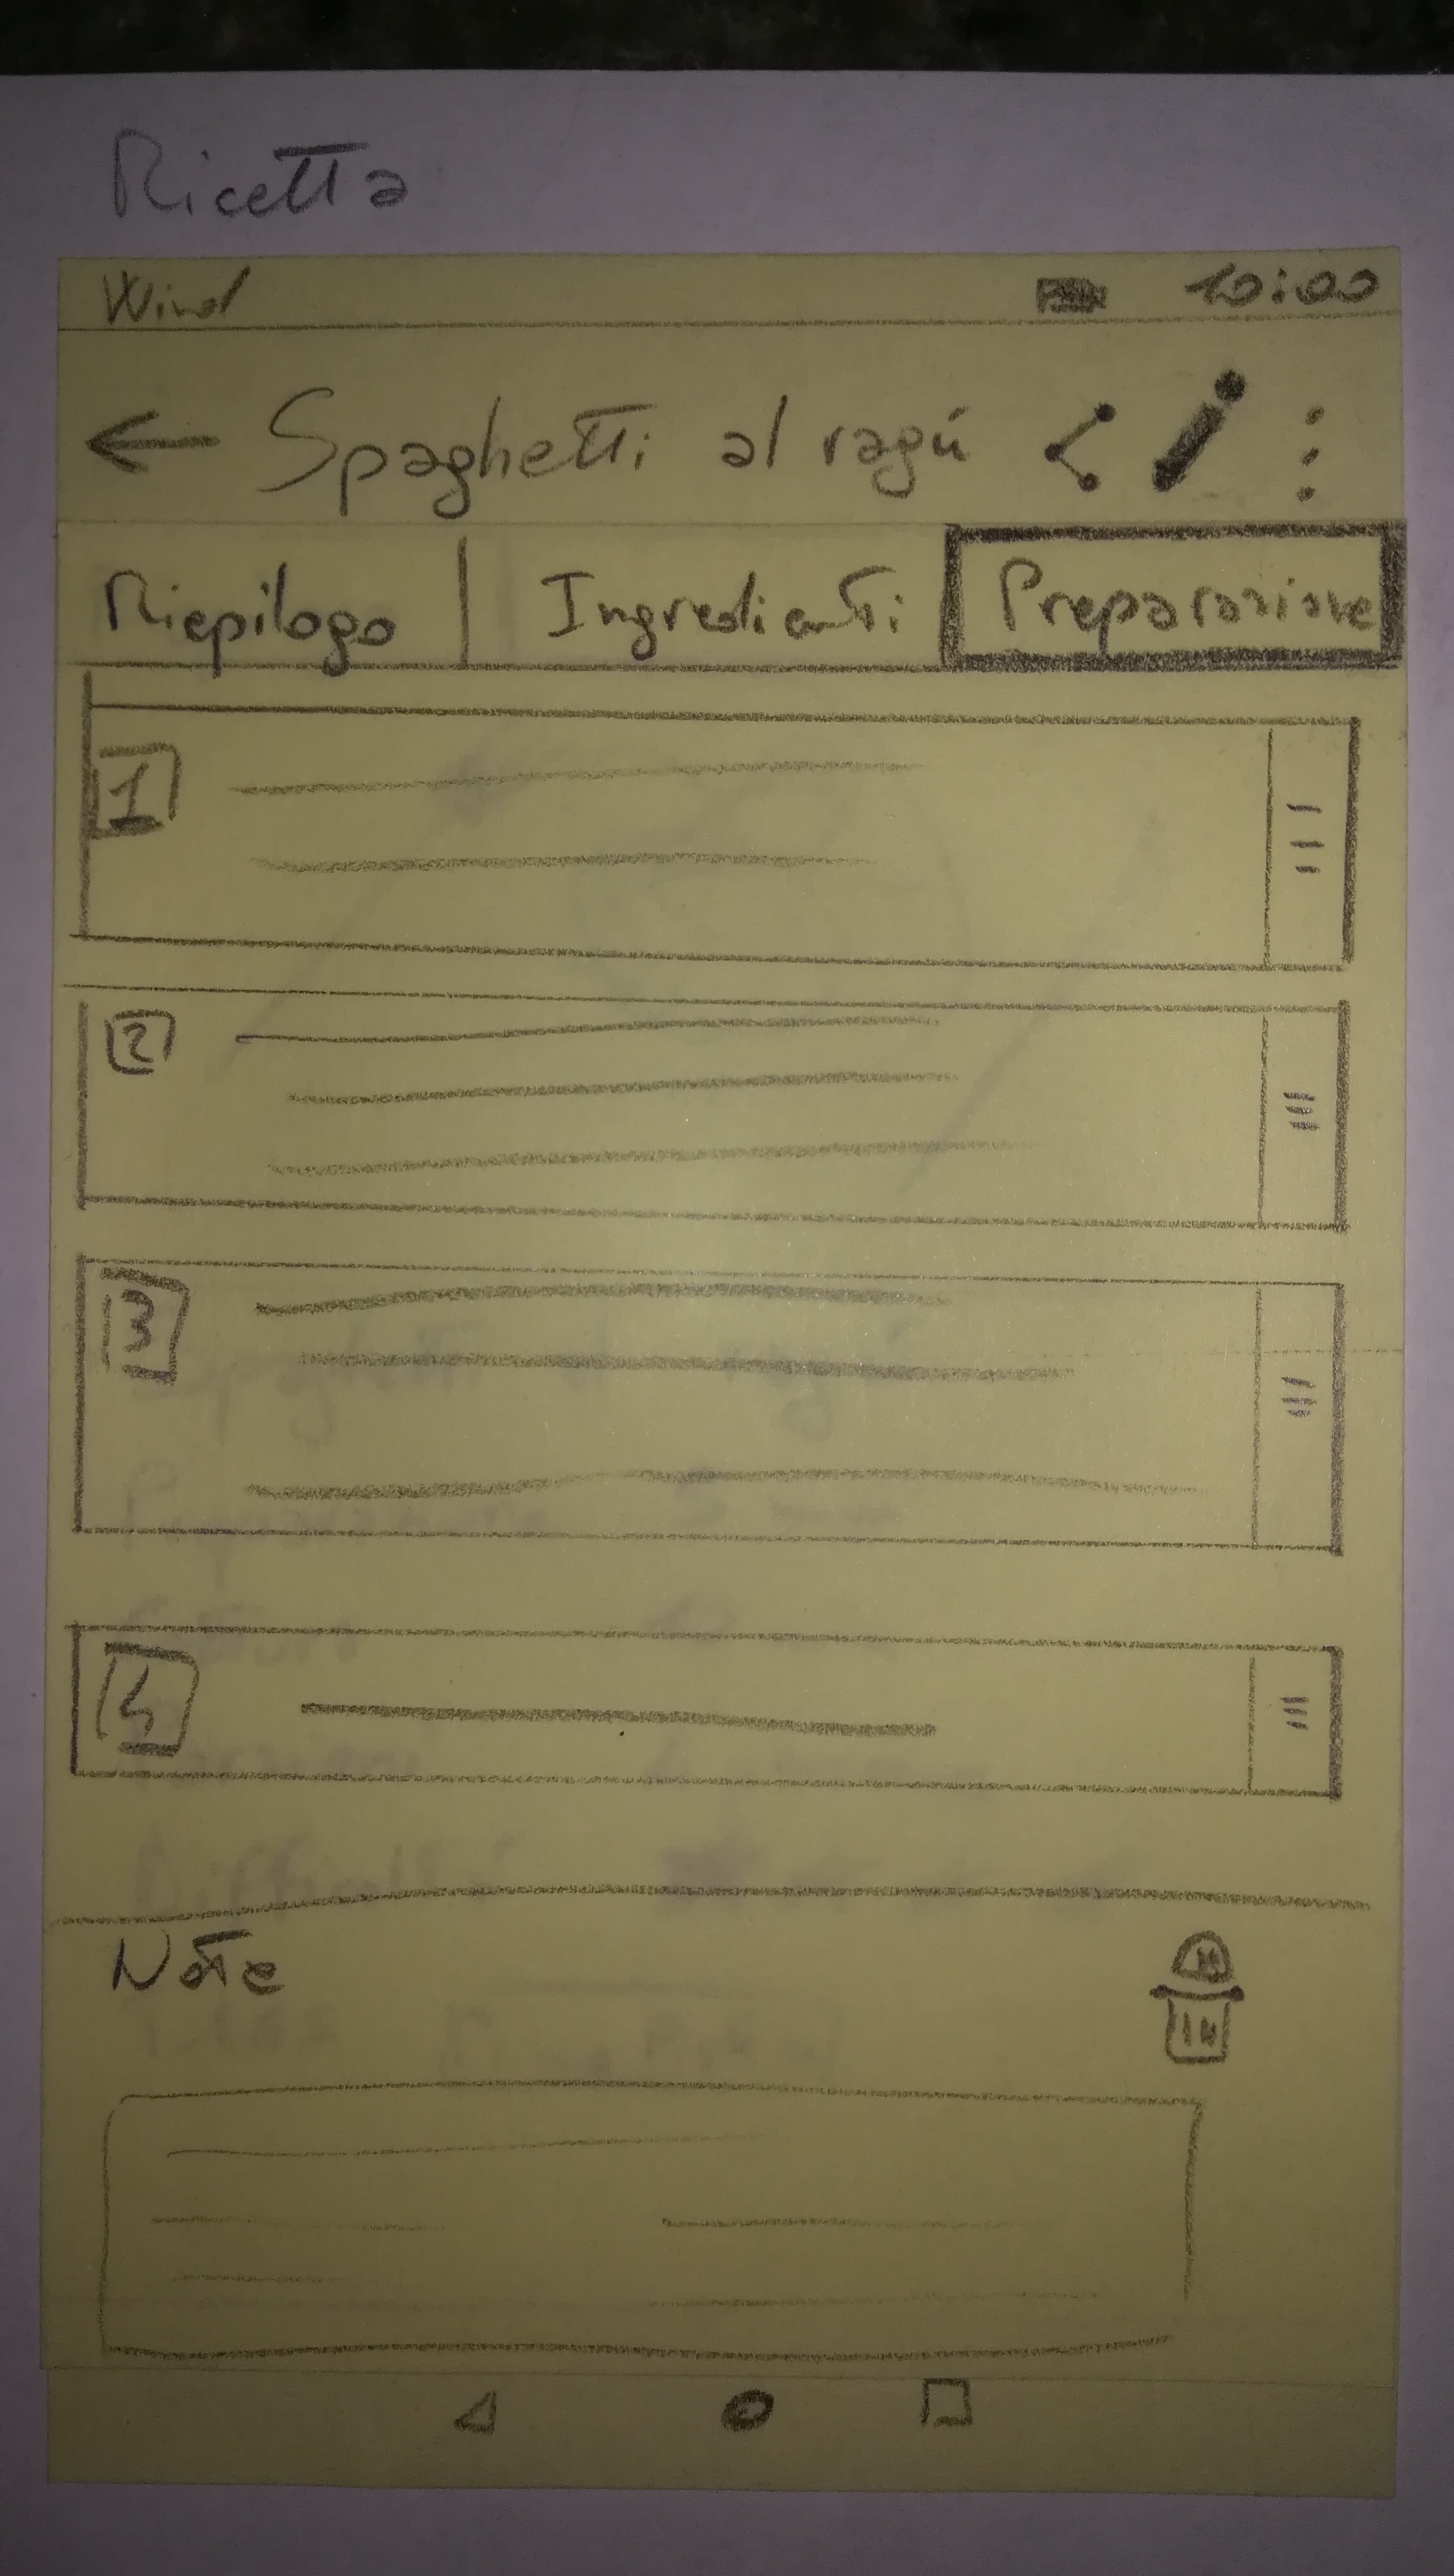 Ricetta
Wind 10:00
Spaghetti al ragú
Riepilogo Ingredienti Preparazione
1
2
3
4
Note